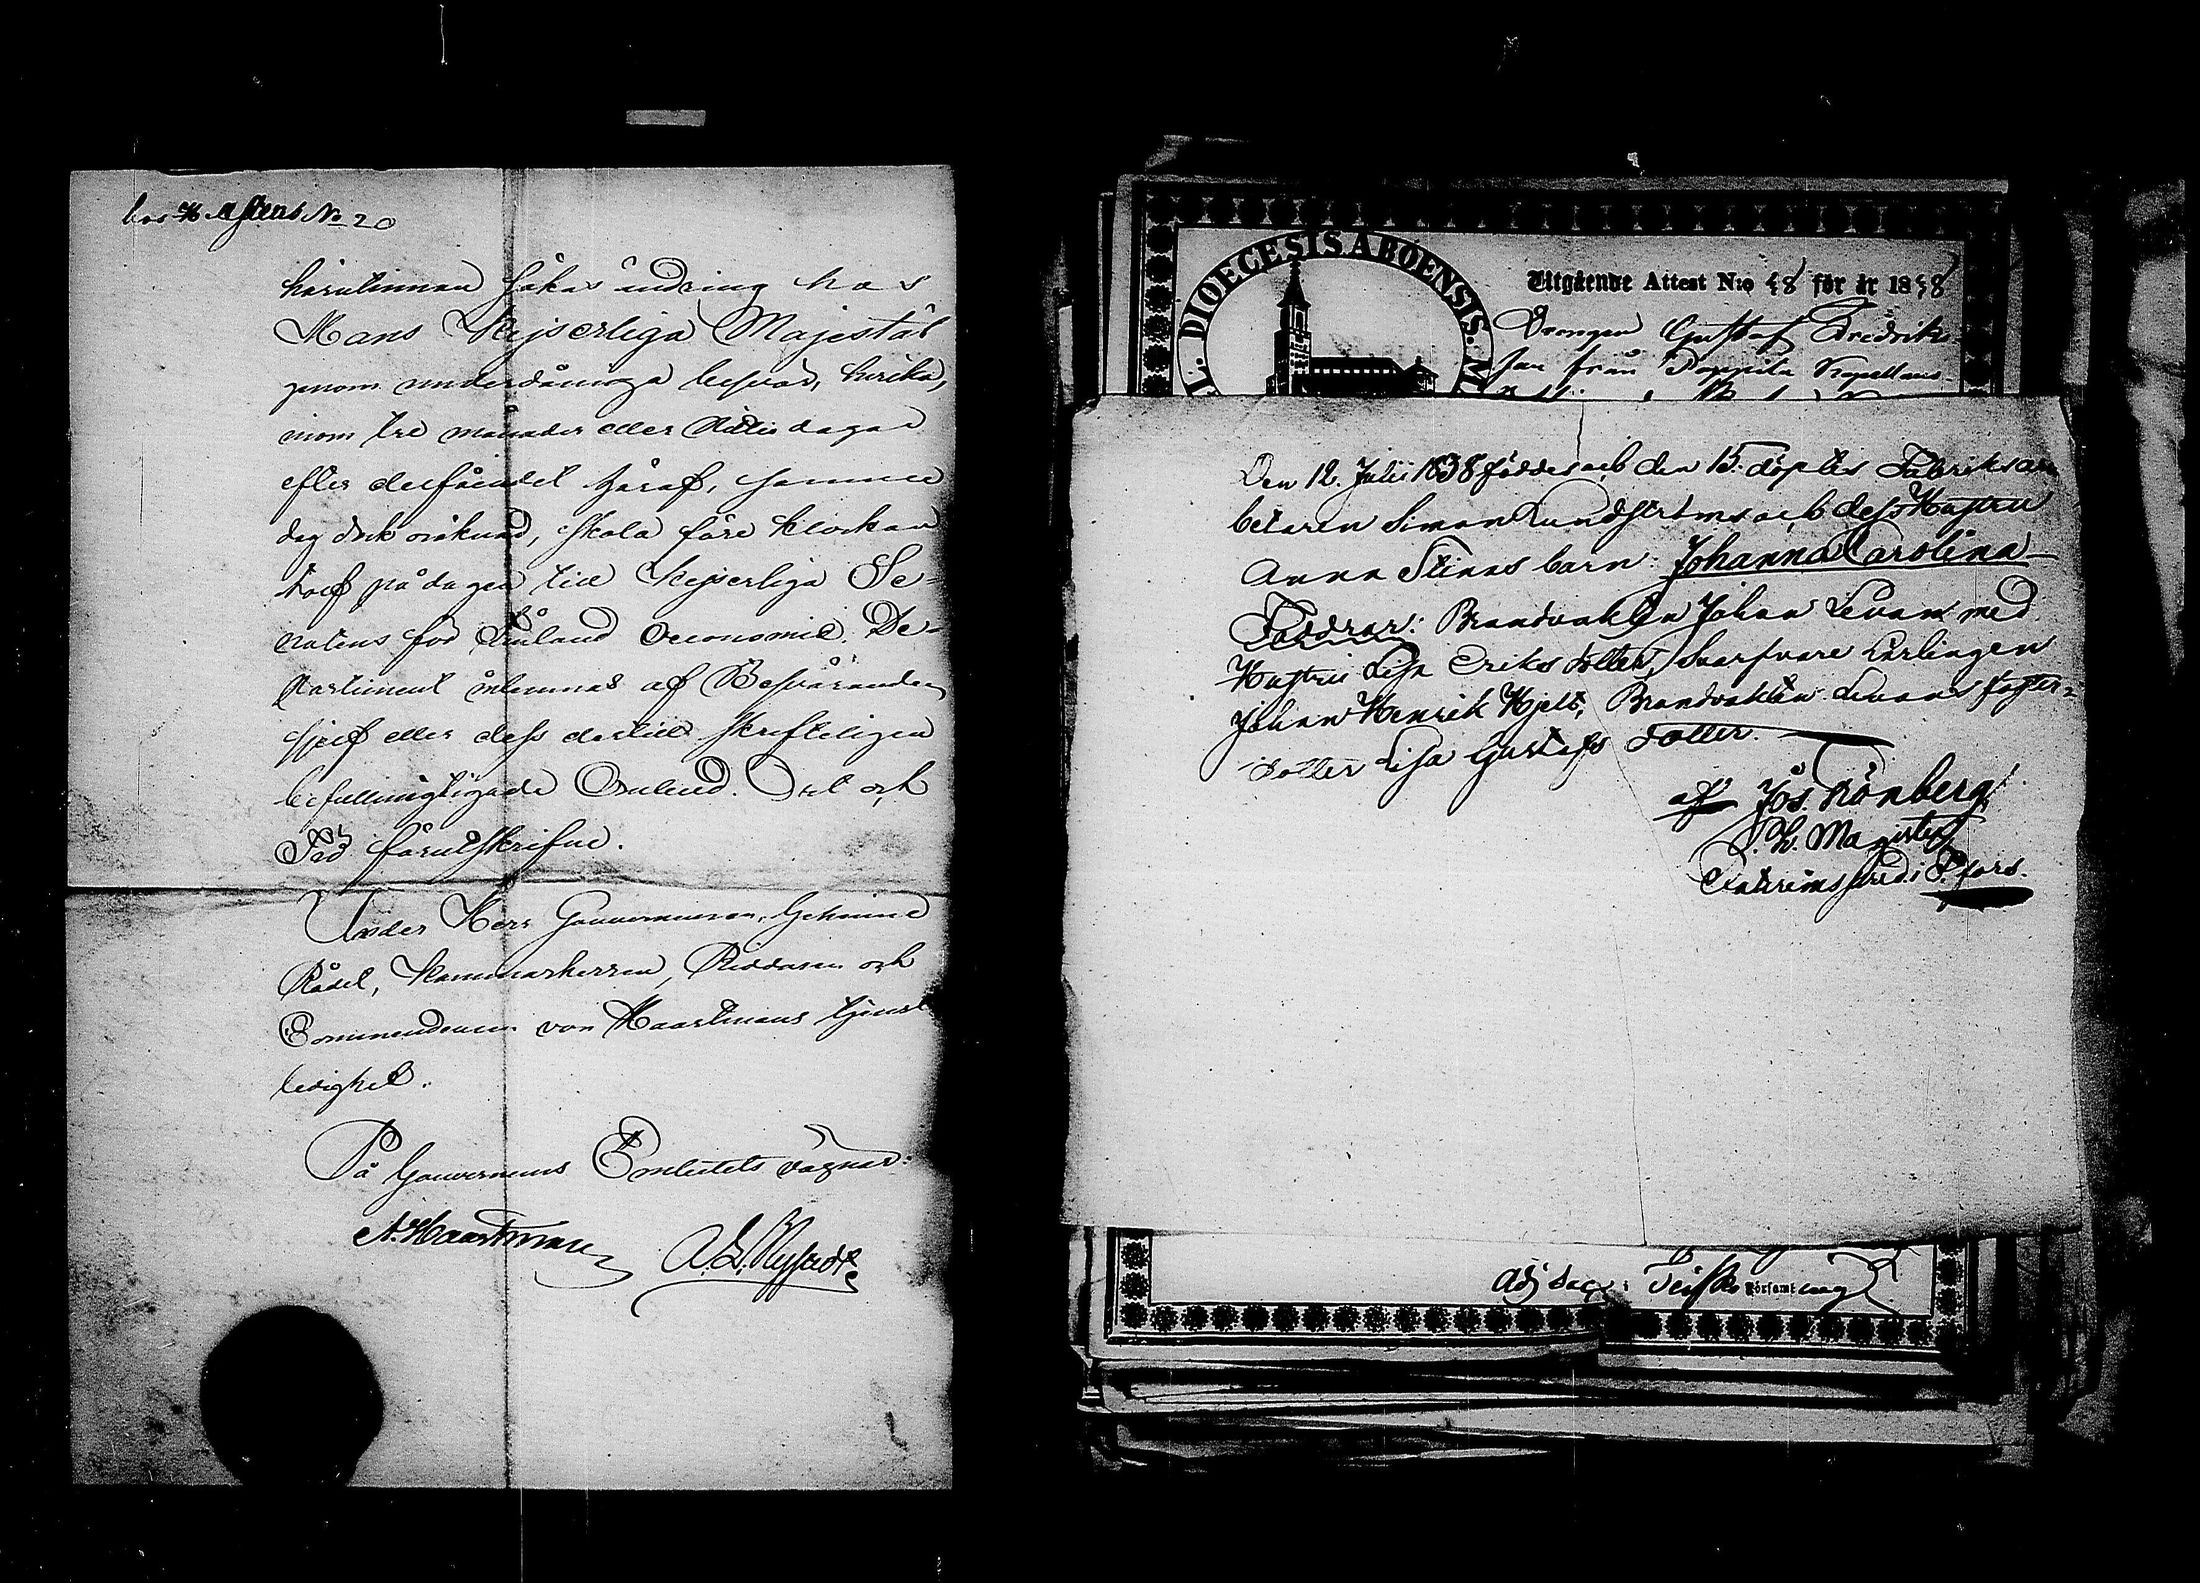 hos H Asplens No 20
härutinnan söka ändring hos
Hans Kejserliga Majestät
genom underdåniga besvär, hvilka,
inom tre månader eller Nittio dagar
efter delfåendet häraf, samma
dag dock oräknad, skola före klockan
tolf på dagen till Kejserliga Se-
natens för Finland Oeconomie De-
partiment inlemnas af Besväranden
sjelf eller dess dertill skrifteligen
befullmägtigade Ombud. Ort och
Tid förutskrifne.
Under Herr Gouverneuren, Geheime
Rådet, Kammarherren, Riddaren och
Commendeuren von Haartmans tjenst
ledighet.
På Gouverneurs Embetets vägnar:
A. Haartman
DIOECESIS ABOENSIS. M
Utgående Attest N:o 48 för år 1858
Drängen Gustaf Fredriks
son från Kapellans
Den 12. Julii 1838 föddes och den 15. döptes Fabriksar-
betaren Simon Lundströms och dess Hustru
Anna Stinas barn: Johanna Carolina
Faddrar: Brandvakten Johan Levan med
Hustru Lisa Eriks dotter, Svarfvare Lärlingen
Johan Henrik Hjelt, Brandvakten Levans foster-
dotter Lisa Gustafs dotter.
af Jos. Rönberg
Ph. Magister
Interimspred. i T.fors.
Adj Sac i Teisko Församling